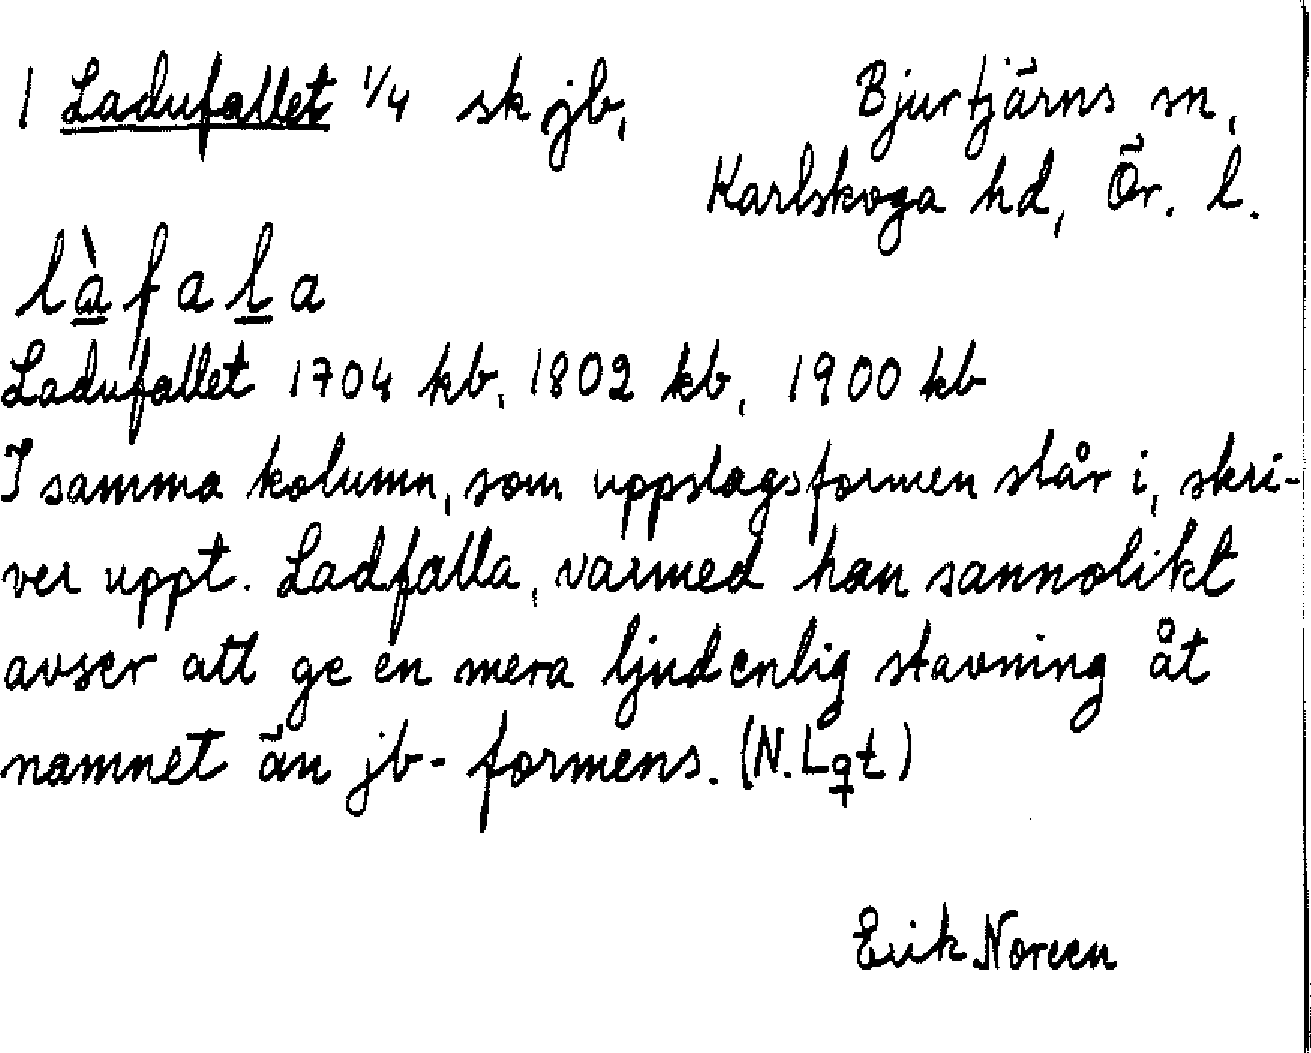 1 Ladufallet 1/4 sk jb,
Bjurtjärns sn,
Karlskoga hd, Ör. l.
làfala
Ladufallet 1704 kb, 1802 kb, 1900 kb
I samma kolumn, som uppslagsformen står i, skri-
ver uppt. Ladfalla, varmed han sannolikt
avser att ge en mera ljudenlig stavning åt
namnet än jb-formens. (N. Lqt)
Erik Noreen